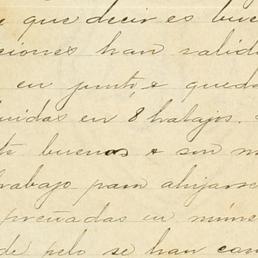 e que decir es bue
ciones han salido
en punto, & queda
uidas en 8 hatajos.
te buenos & son m
trabajo para ahijarse
preñadas en núme
de pelo se han com